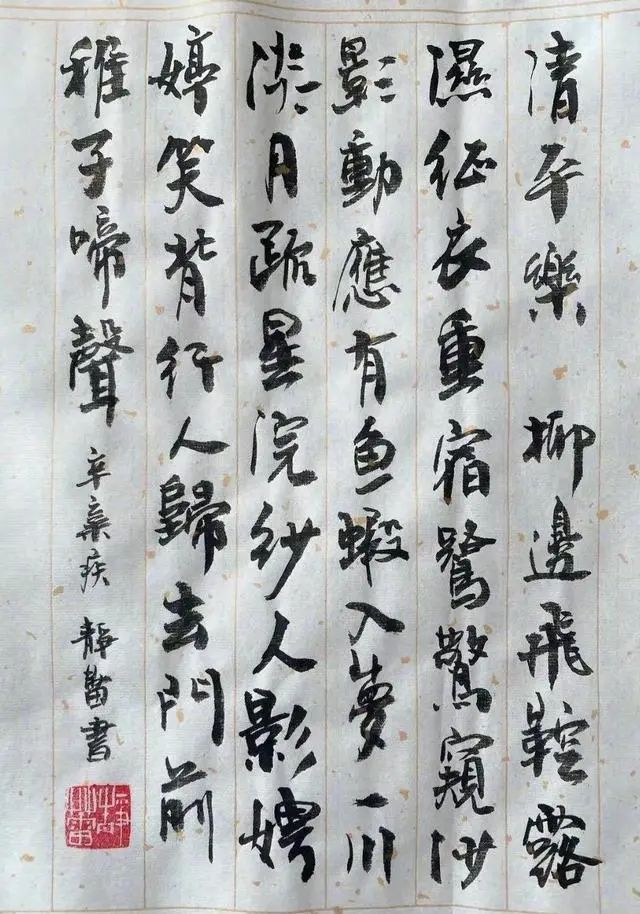 清平樂 柳邊飛鞚露
濕征衣重宿鷺驚窺沙
影動應有鱼蝦入夢一川
淡月疏星浣紗人影娉
婷笑背行人歸去門前
稚子啼聲 辛棄疾 靜書